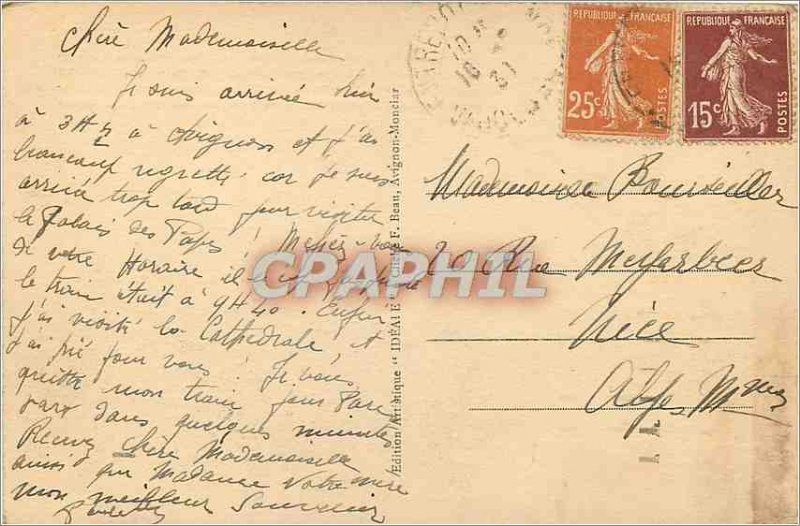 Chère Mademoiselle
Je suis arrivée hier
à 3H½ à Avignon et j'ai
beaucoup regretté car je suis
arrivée trop tard pour visiter
le Palais des Papes! Méfiez-vous
de votre Horaire il
le train était à 9H40. Enfin
j'ai visité la Cathédrale et
j'ai prié pour vous! Je vais
quitter mon train pour
dans quelques minutes
Recevez chère Mademoiselle
ainsi que Madame votre mère
mon meilleur Souvenir
Edition Artistique "IDÉALE" Cliché F. Beau, Avignon-Monclar
REPUBLIQUE FRANÇAISE
25c
POSTES
REPUBLIQUE FRANÇAISE
15c
POSTES
Mademoiselle
20 Rue Meyerbeer
Nice
Alpes Mmes
CPARPHIL